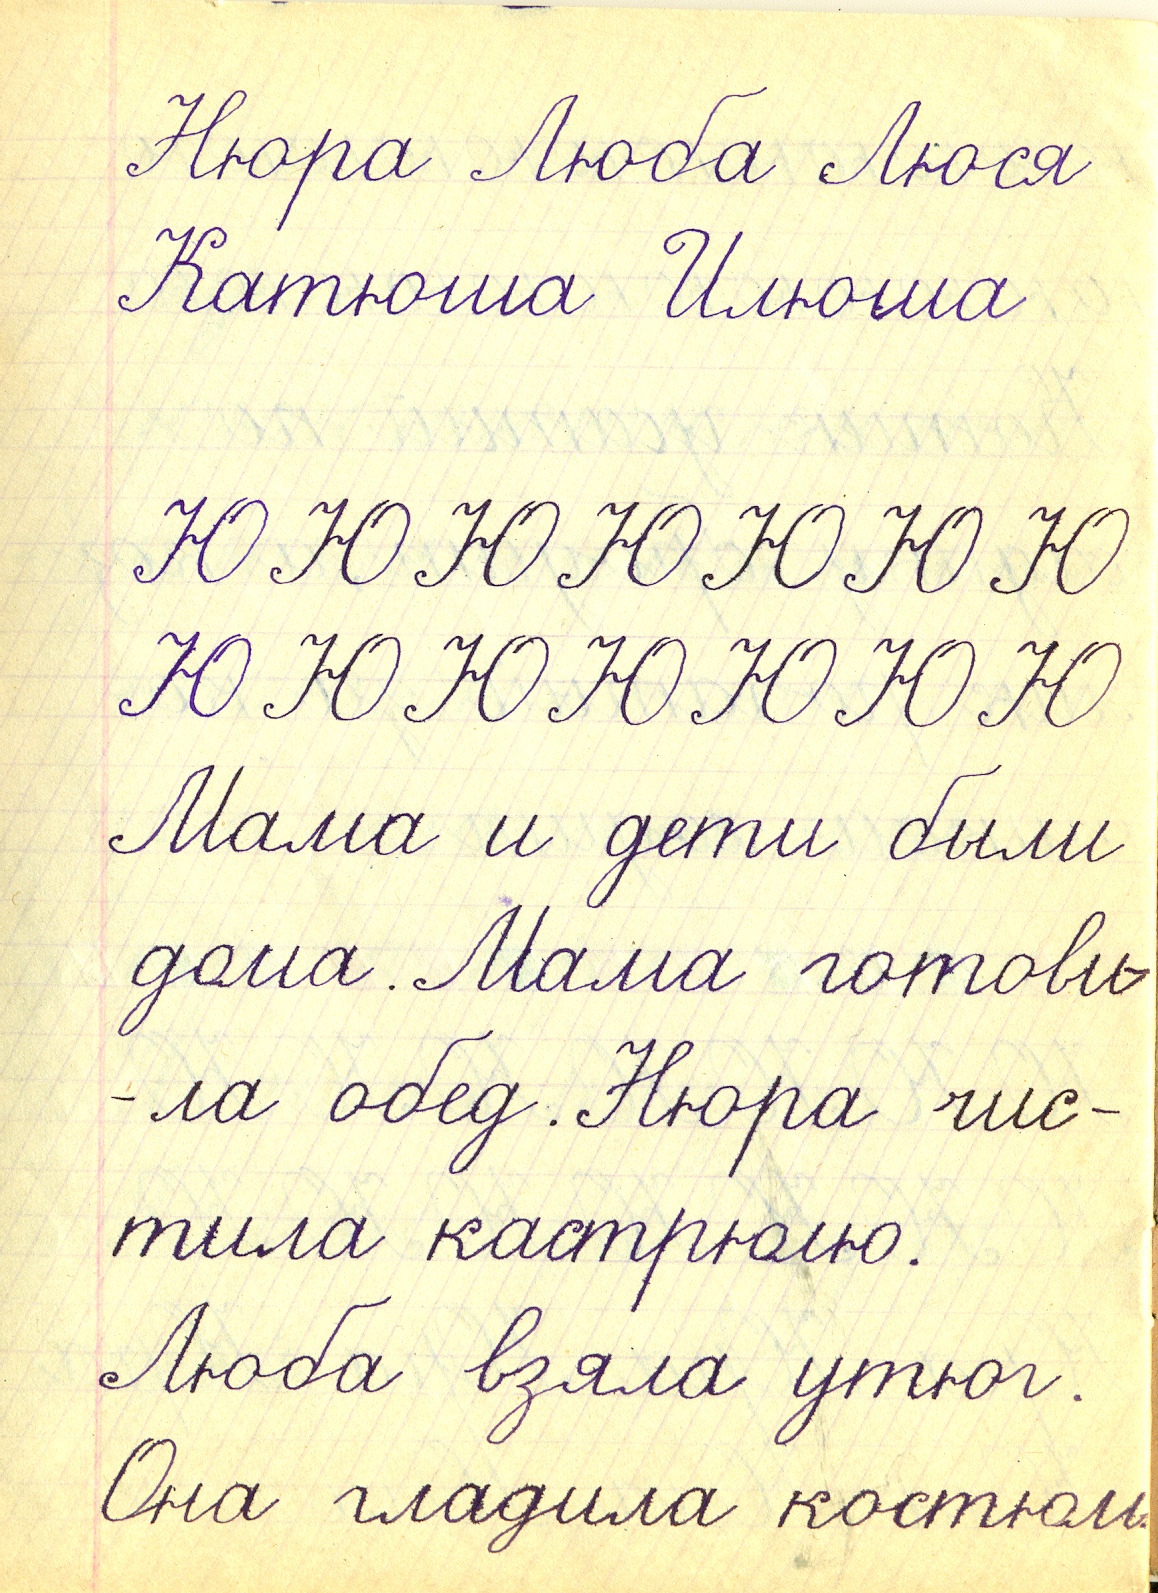 Нюра Люба Люся
Катюша Илюша
Ю Ю Ю Ю Ю Ю Ю
Ю Ю Ю Ю Ю Ю Ю
Мама и дети были
дома. Мама готови-
-ла обед. Нюра чис-
тила кастрюлю.
Люба взяла утюг.
Она гладила костюм.